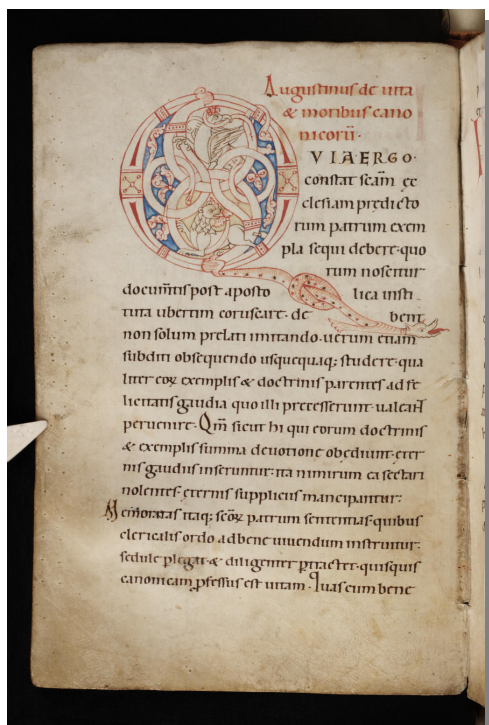 Augustinus de uita
& moribus cano
nicorū.
QVIA ERGO.
constat scām ec
clesiam predicto
rum patrum exem
pla sequi debere. quo
rum noscitur
documtis post aposto lica insti
tuta ubertim coruscare. de bent
non solum prelati imitando. uerum etiam
subditi obsequendo usquequaq; studere. qua
liter eoꝝ exemplis & doctrinis parentes ad fe
licitatis gaudia quo illi precesserunt. ualeant
peruenire. Qm̄ sicut hi qui eorum doctrinis
& exemplis summa deuotione obediunt. eter
nis gaudiis inseruntur: ita nimirum ea sectari
nolentes. eternis suppliciis mancipantur:
Memoratas itaq; scōꝝ patrum sententias. quibus
clericalis ordo ad bene uiuendum instruitur.
sedule plegat & diligenter ptractet. quisquis
canonicam pfessus est uitam. Quas cum bene